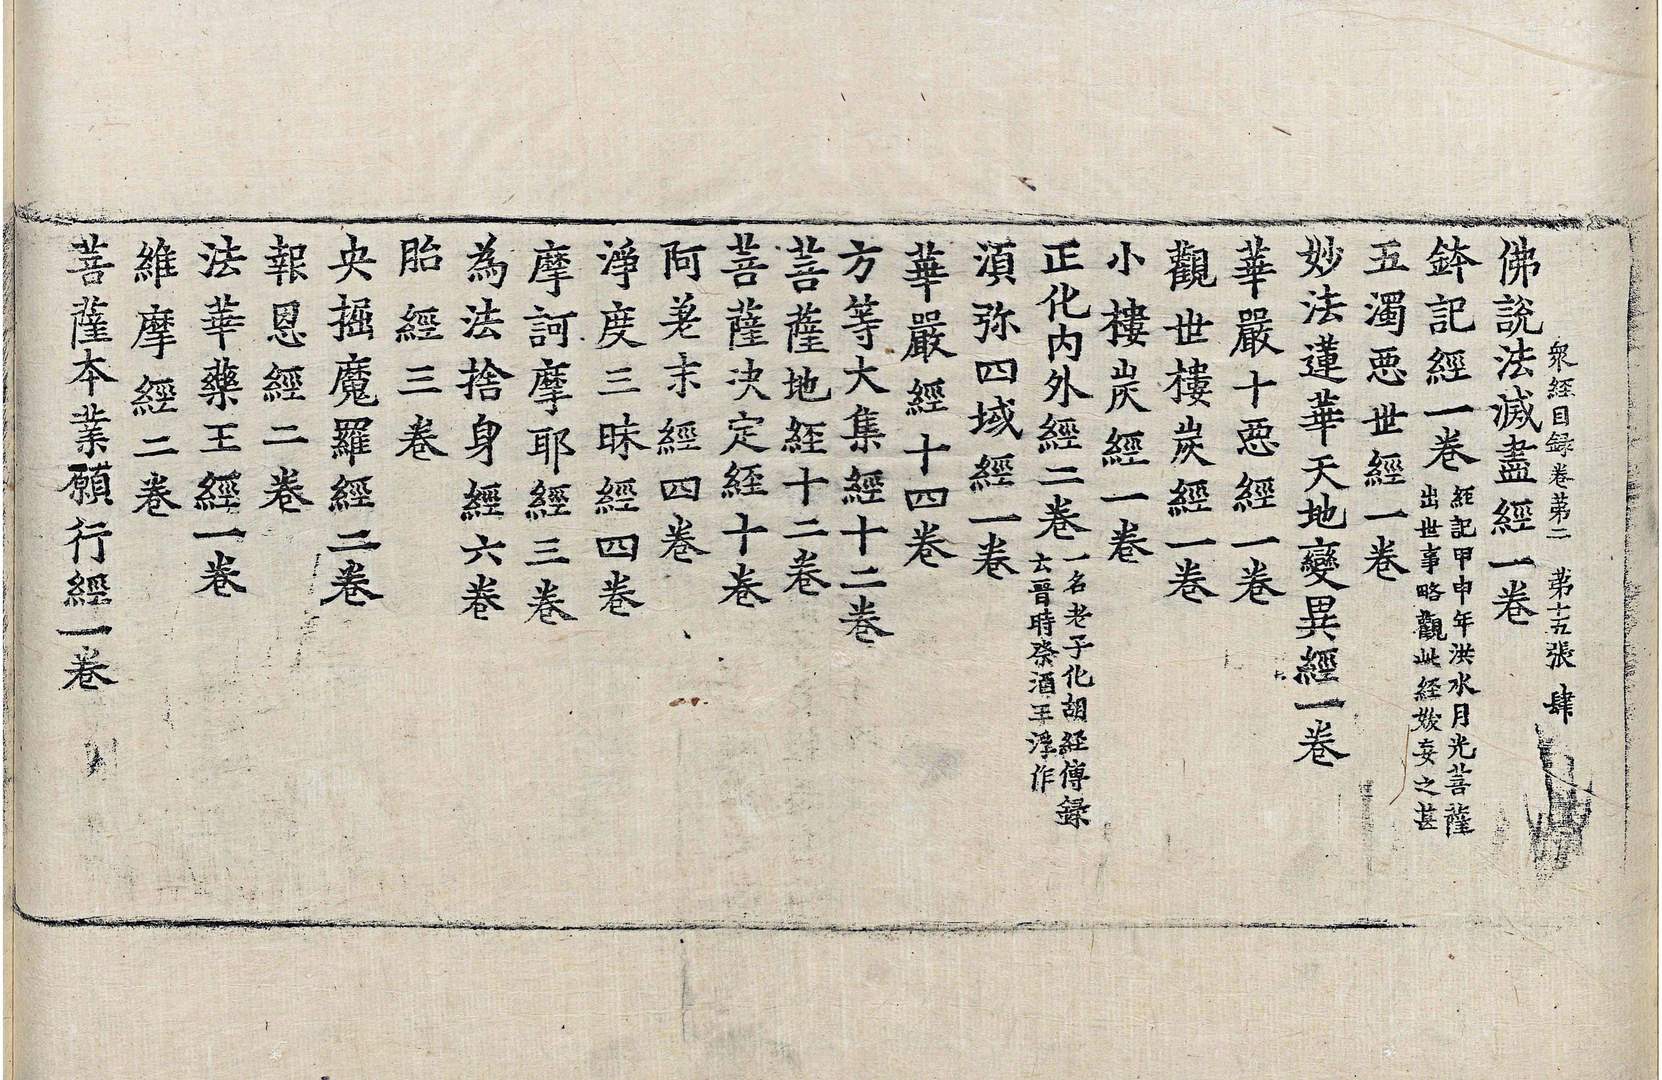 衆經目録卷苐二　苐十五張　肆
佛說法滅盡經一卷
鉢記經一卷
經記甲申年洪水月光菩薩
出世事略觀此經妖妄之甚
五濁惡世經一卷
妙法蓮華天地變異經一卷
華嚴十惡經一卷
觀世樓炭經一卷
小樓炭經一卷
正化内外經二卷
一名老子化胡經傳録
云晉時祭酒王浮作
湏弥四域經一卷
華嚴經十四卷
方等大集經十二卷
菩薩地経十二卷
菩薩决定経十卷
阿差末經四卷
淨度三昧經四卷
摩訶摩耶經三卷
為法捨身經六卷
胎經三卷
央掘魔羅經二卷
報恩經二卷
法華藥王經一卷
維摩經二卷
菩薩本業願行經一卷